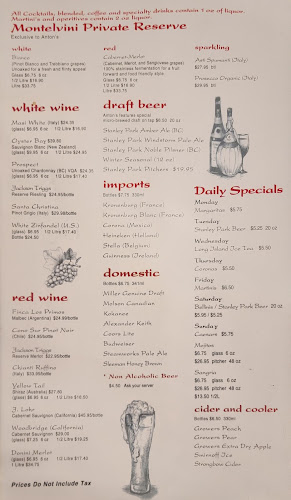 All Cocktails, blended, coffee and specialty drinks contain 1 oz of liquor.
Martini's and aperitives contain 2 oz liquor.
Montelvini Private Reserve
Exclusive to Anton's
white
Bianco
(Pinot Bianco and Trebbiano grapes,
unoaked for a fresh and fruity appeal)
Glass $6.75 8 oz
1/2 Litre $16.90
Litre $33.75
red
Cabernet-Merlot
(Cabernet, Merlot, and Sangiovese grapes)
100% stainless fermentation for a fruit
forward and food friendly style.
Glass $6.75 8 oz
1/2 Litre $16.90
Litre $33.75
sparkling
Asti Spumanti Only)
$27.95 btl
Prosecco Organic Only)
$29.95 btl
white wine
Maxi White (Italy) $24.35
(glass) $6.95 6 oz 1/2 Litre $16.50
Oyster Bay $39.95
Sauvignon Blanc (New Zealand)
(glass) $8.95 6 oz 1/2 Litre $24.50
Prospect
Unoaked Chardonnay (BC) VQA $34.35
(glass) $6.95 6 oz 1/2 Litre $17.40
Jackson Triggs
Reserve Riesling $24.95/bottle
Santa Christina
Pinot Grigio (Italy) $29.95/bottle
White Zinfandel (U.S.)
(glass) $6.95 1/2 Litre $17.40
Entire $24.50
draft beer
Anton's features special
micro-brewed draft on tap $6.50 20 oz
Stanley Park Amber Ale (BC)
Stanley Park Windstorm Pale Ale
Stanley Park Noble Pilsner (BC)
Winter Seasonal (12 oz)
Stanley Park Pitchers $19.95
imports
Bottles $7.75 330ml
Kronenburg (France)
Kronenburg Blanc (France)
Corona (Mexico)
Heineken (Holland)
Stella (Belgium)
Guinness (Ireland)
domestic
Bottles $6.75 341ml
Miller Genuine Draft
Molson Canadian
Kokanee
Alexander Keith
Coors Lite
Budweiser
Steamworks Pale Ale
Sleeman Honey Brown
* Non Alcoholic Beer
$4.50 Ask your server
Daily Specials
Monday
Margaritas $5.75
Tuesday
Stanley Park Beer $5.25 20 oz
Wednesday
Long Island Ice Tea $5.50
Thursday
Caesars $5.75
Friday
Martinis $6.50
Saturday
Stanley Park Beer 20 oz
$5.95 / $5.25
Sunday
Caesars $5.75
Mojitos
$6.75 glass 6 oz
$26.95 pitcher 48 oz
Sangria
$6.75 glass 6 oz
$26.95 pitcher 48 oz
$19.50 1/2L
red wine
Finca Los Primos
Malbec (Argentina) $24.95/bottle
Cono Sur Pinot Noir
(Chile) $24.95/bottle
Jackson Triggs
Reserve Merlot $23.95/bottle
Chianti Ruffino
(Italy) $33.95/bottle
Yellow Tail
Shiraz (Australia) $27.60
(glass) $6.95 6 oz 1/2 Litre $17.40
J. Lohr
Cabernet Sauvignon (California) $40.95/bottle
Woodbridge (California)
Cabernet Sauvignon $29.95
(glass) $7.25 6 oz 1/2 Litre $19.25
Danni Merlot
(glass) $6.95 6 oz 1/2 Litre $17.40
1 Litre $34.75
cider and cooler
Bottles $6.50 330ml
Growers Peach
Growers Pear
Growers Extra Dry Apple
Smirnoff Ice
Strongbow Cider
Prices Do Not Include Tax